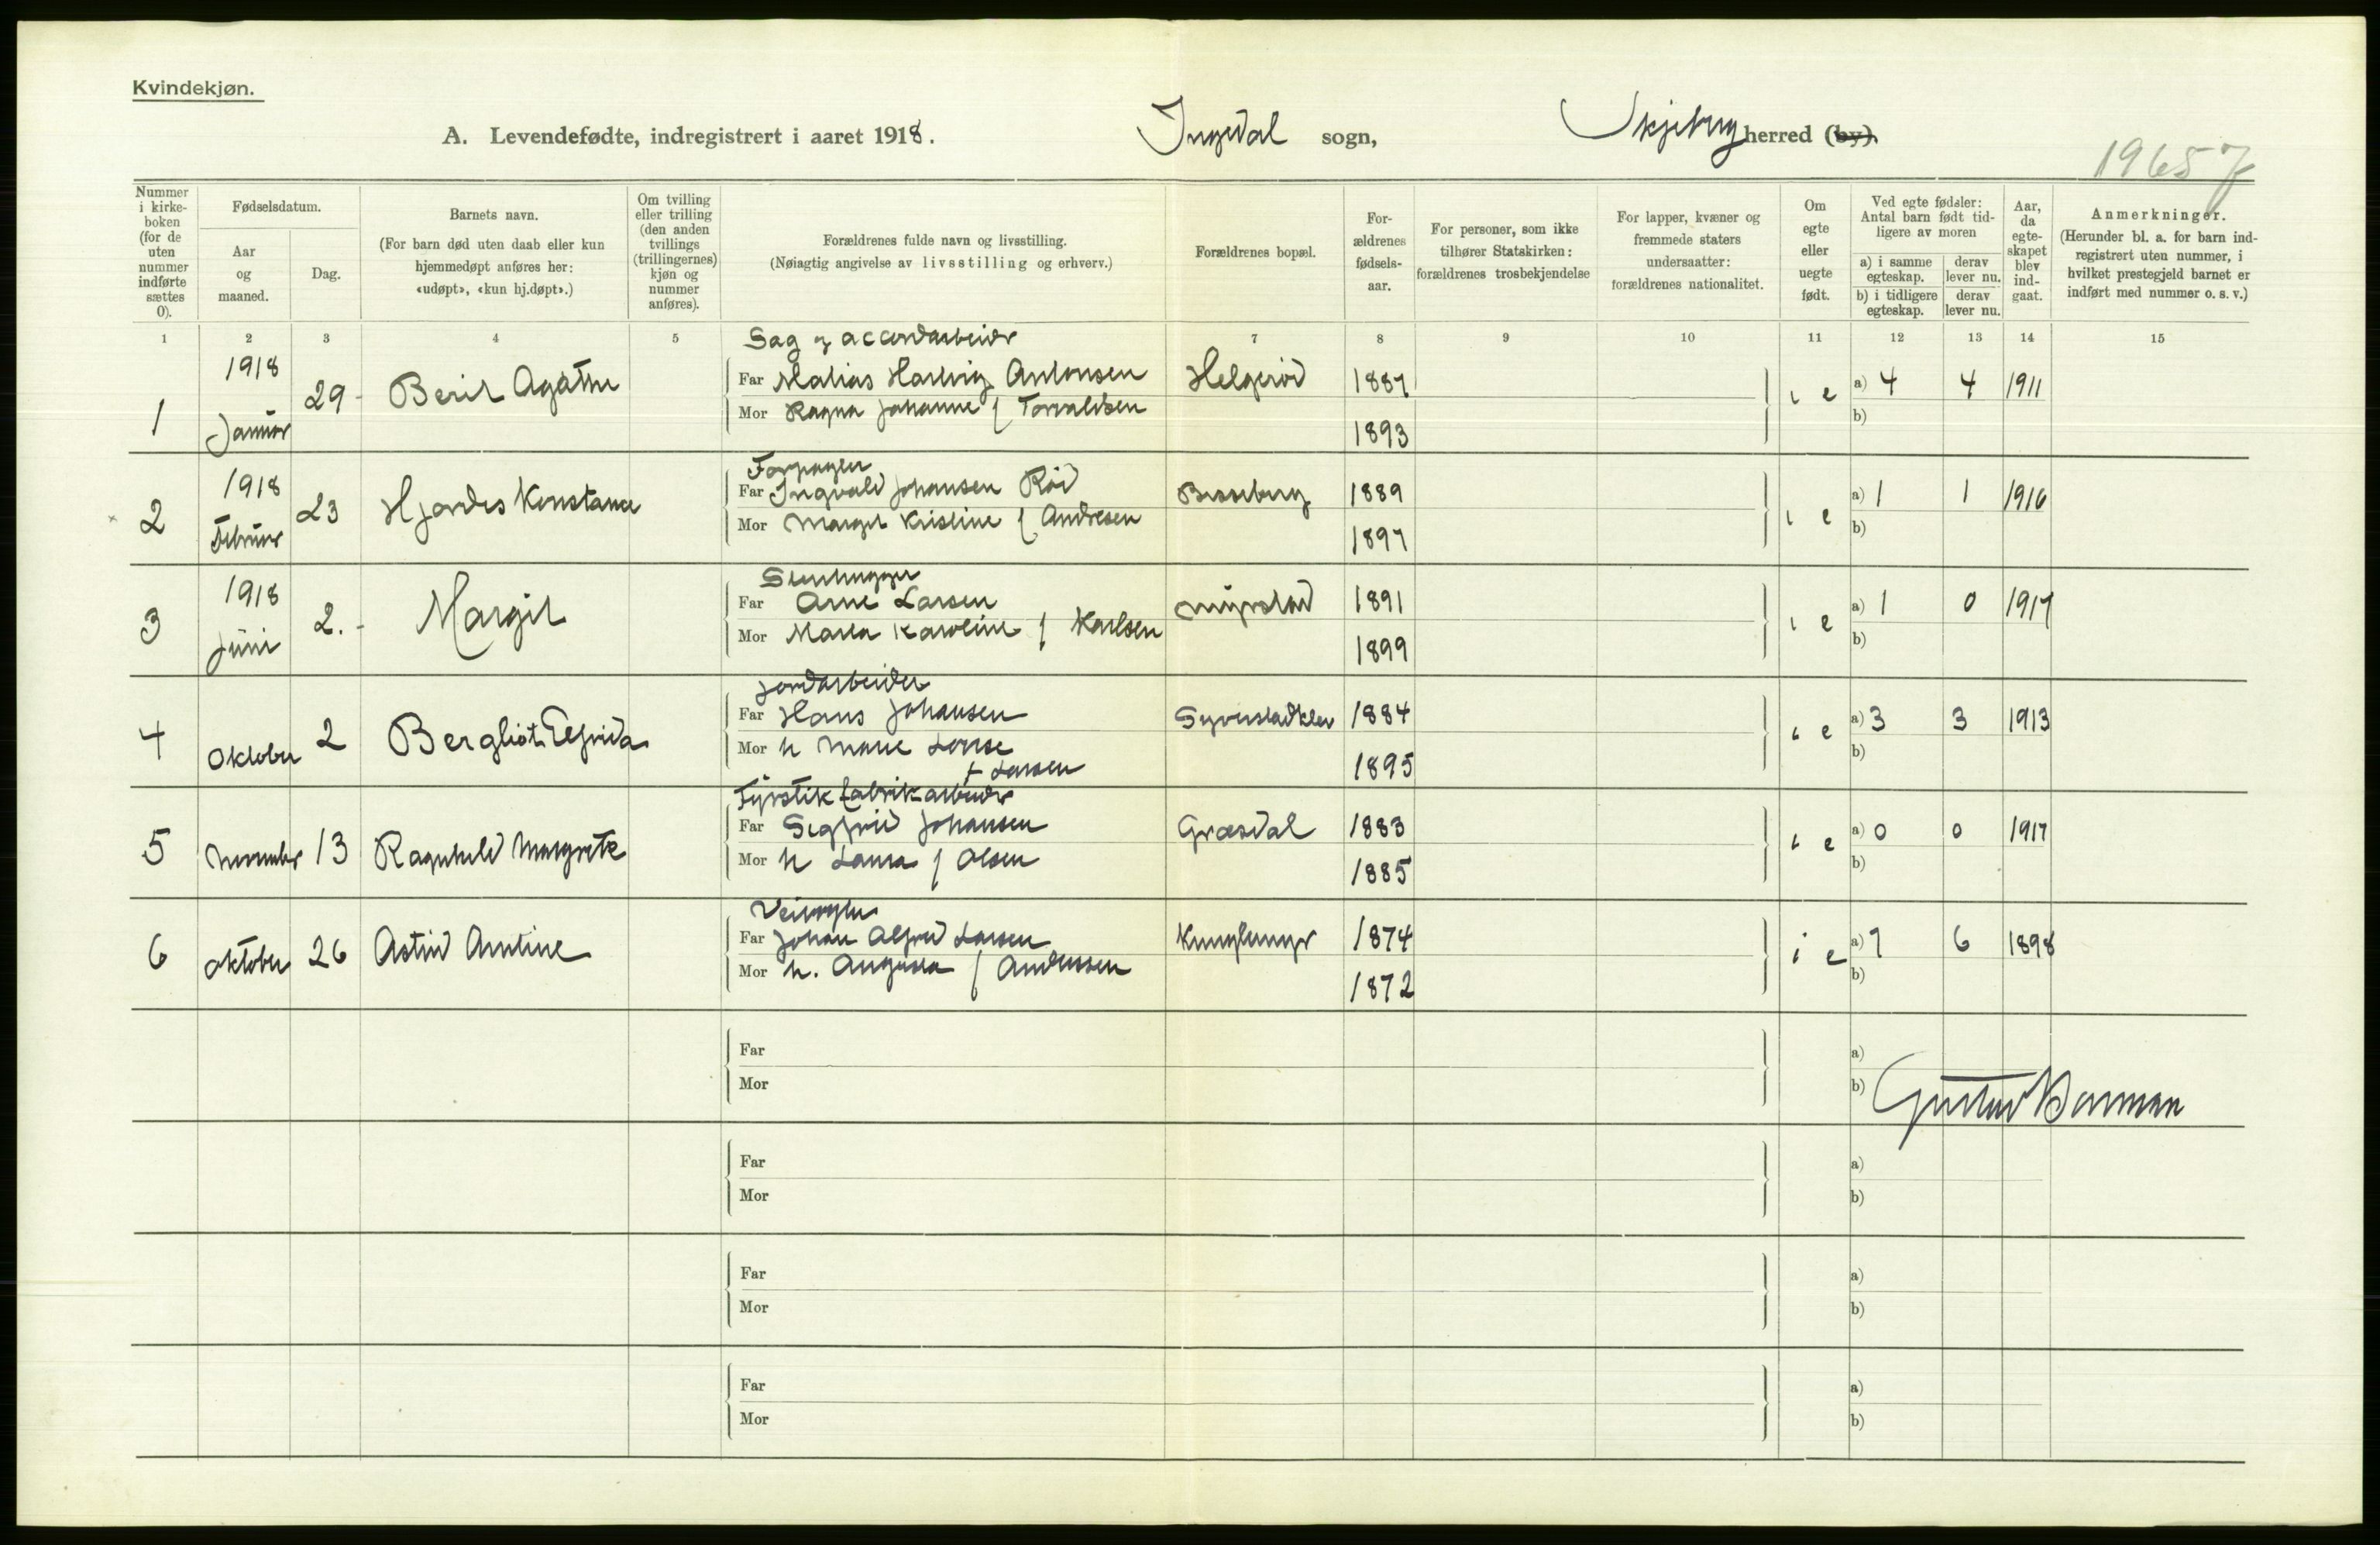 Kvindekjøn.
A. Levendefødte, indregistrert i aaret 1918. Ingedal sogn, Skjeberg herred (by).
19657
Nummer i kirke-boken (for de uten nummer indførte sættes 0).
Fødselsdatum.
Aar og maaned.
Dag.
Barnets navn.
(For barn død uten daab eller kun hjemmedøpt anføres her: «udøpt», «kun hj.døpt».)
Om tvilling eller trilling (den anden tvillings (trillingernes) kjøn og nummer anføres).
Forældrenes fulde navn og livsstilling.
(Nøiagtig angivelse av livsstilling og erhverv.)
Forældrenes bopæl.
For-ældrenes fødsels-aar.
For personer, som ikke tilhører Statskirken: forældrenes trosbekjendelse
For lapper, kvæner og fremmede staters undersaatter: forældrenes nationalitet.
Om egte eller uegte født.
Ved egte fødsler: Antal barn født tid-ligere av moren
a) i samme egteskap. derav lever nu.
b) i tidligere egteskap. derav lever nu.
Aar, da egte-skapet blev ind-gaat.
Anmerkninger.
(Herunder bl. a. for barn ind-registrert uten nummer, i hvilket prestegjeld barnet er indført med nummer o. s. v.)
1 2 3 4 5 7 8 9 10 11 12 13 14 15
Sag og accordarbeider
1 1918 Januar 29 Berit Agathe Far Matias Hartvig Antonsen Helgerød 1887 i e a) 4 4 1911
Mor Ragna Johanne f Torvaldsen 1893 b)
Forpagter
2 1918 Februar 23 Hjordis Konstance Far Ingvald Johansen Rød Bosseberg 1889 i e a) 1 1 1916
Mor Margit Kristine f Andresen 1897 b)
Stenhugger
3 1918 Juni 2. Margit Far Arne Larsen 1891 i e a) 1 0 1917
Mor Marta Karoline f Karlsen 1899 b)
Jordarbeider
4 Oktober 2 Bergliot Elfrida Far Hans Johansen Syverstadklev 1884 i e a) 3 3 1913
Mor H Marie Lovise f Larsen 1895 b)
Fyrstikfabrikarbeider
5 November 13 Ragnhild Margrete Far Sigfrid Johansen Græsdal 1883 i e a) 0 0 1917
Mor H Laura f Olsen 1885 b)
Veivogter
6 Oktober 26 Astrid Arntine Far Johan Alfred Larsen 1874 i e a) 7 6 1898
Mor H. Augusta f Andressen 1872 b)
Far a)
Mor b)
Gustav Borman
Far a)
Mor b)
Far a)
Mor b)
Far a)
Mor b)